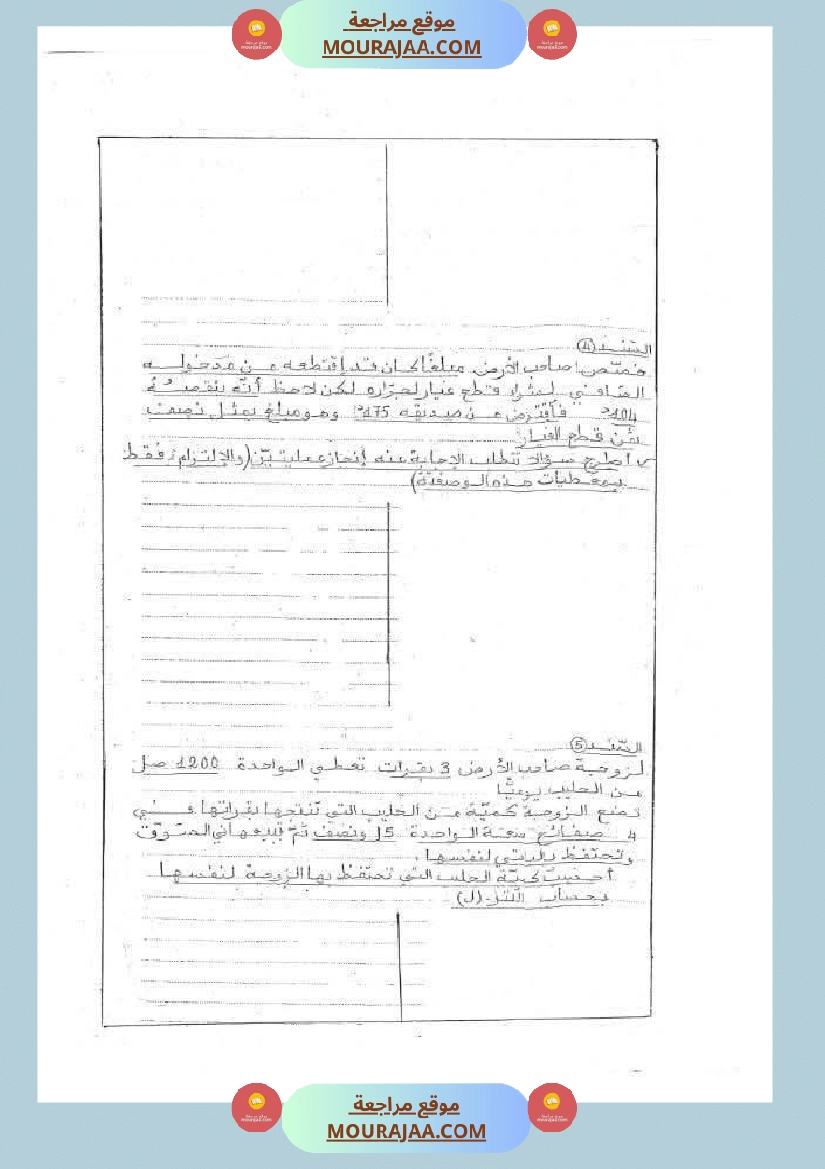 موقع مراجعة
MOURAJAA.COM
السّنــد ④
خصّص صاحب الأرض مبلغًا كان قد اقتطعه مـن مدخولـه
الصّافي لشراء قطع غيار لجرّاره لكن لاحظ أنّه ينقصـه
فاقترض مـن صديقه 475 وهو مبلغ يمثـل نصـف
ثمن قطع الغيار
اطرح سـؤالا تتطلب الإجابة عنه إنجاز عمليتيـن (والالتزام فقط
بمعطيات هـذه الـوضعيّة)
السّنـد ⑤
لـزوجـة صاحب الأرض 3 بقـرات تعطـي الـواحدة 1200 صل
مـن الحليب يوميًّا
تضع الـزوجة كميّة مـن الحليب التي تنتجها بقراتها فـي
4 صفـائح سعـة الـواحدة 15 ل ونصف ثمّ تبيعها في السّـوق
وتحتفظ بالباقي لنفسها.
أحسب كميّـة الحليب التـي تحتفظ بها الـزوجة لنفسهـا
بحساب اللّتـر (ل)
موقع مراجعة
MOURAJAA.COM